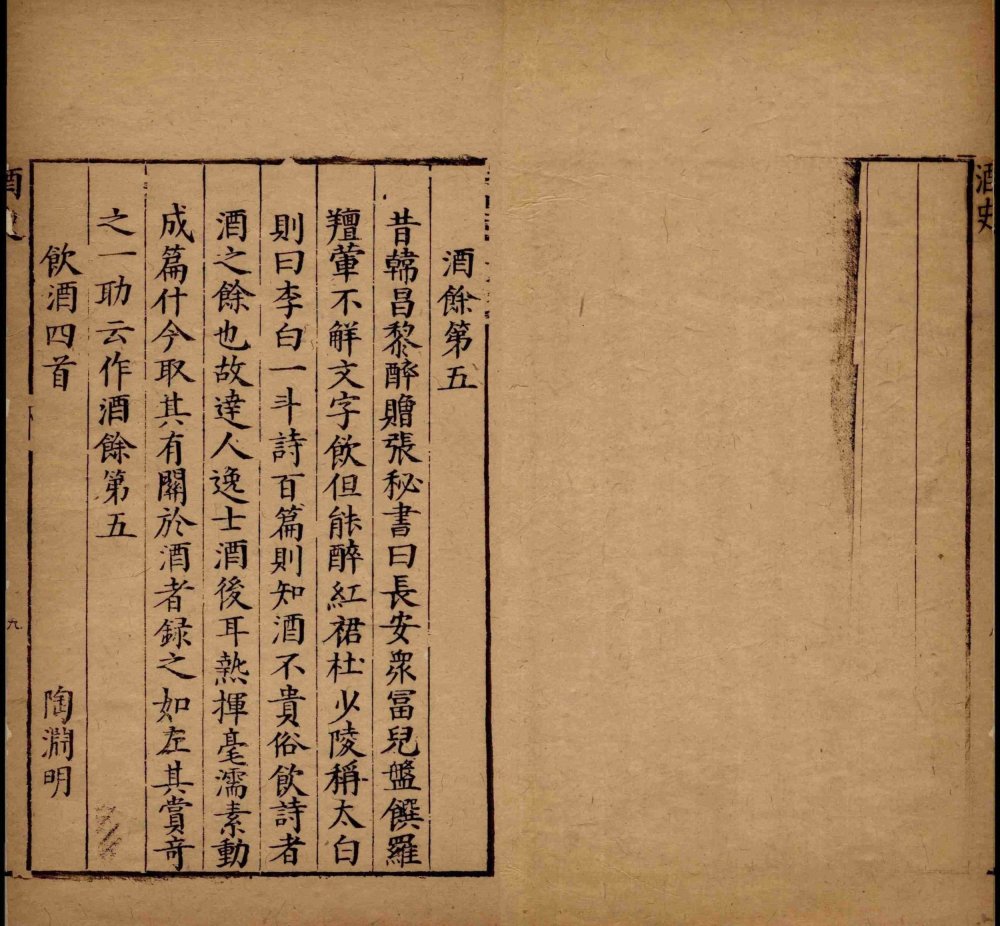 酒史
酒餘第五
昔韓昌黎醉贈張秘書曰長安衆冨兒盤饌羅
羶葷不解文字飲但能醉紅裙杜少陵稱太白
則曰李白一斗詩百篇則知酒不貴俗飲詩者
酒之餘也故達人逸士酒後耳熱揮毫濡素動
成篇什今取其有關於酒者録之如左其賞竒
之一助云作酒餘第五
飲酒四首 陶淵明
酒史
九